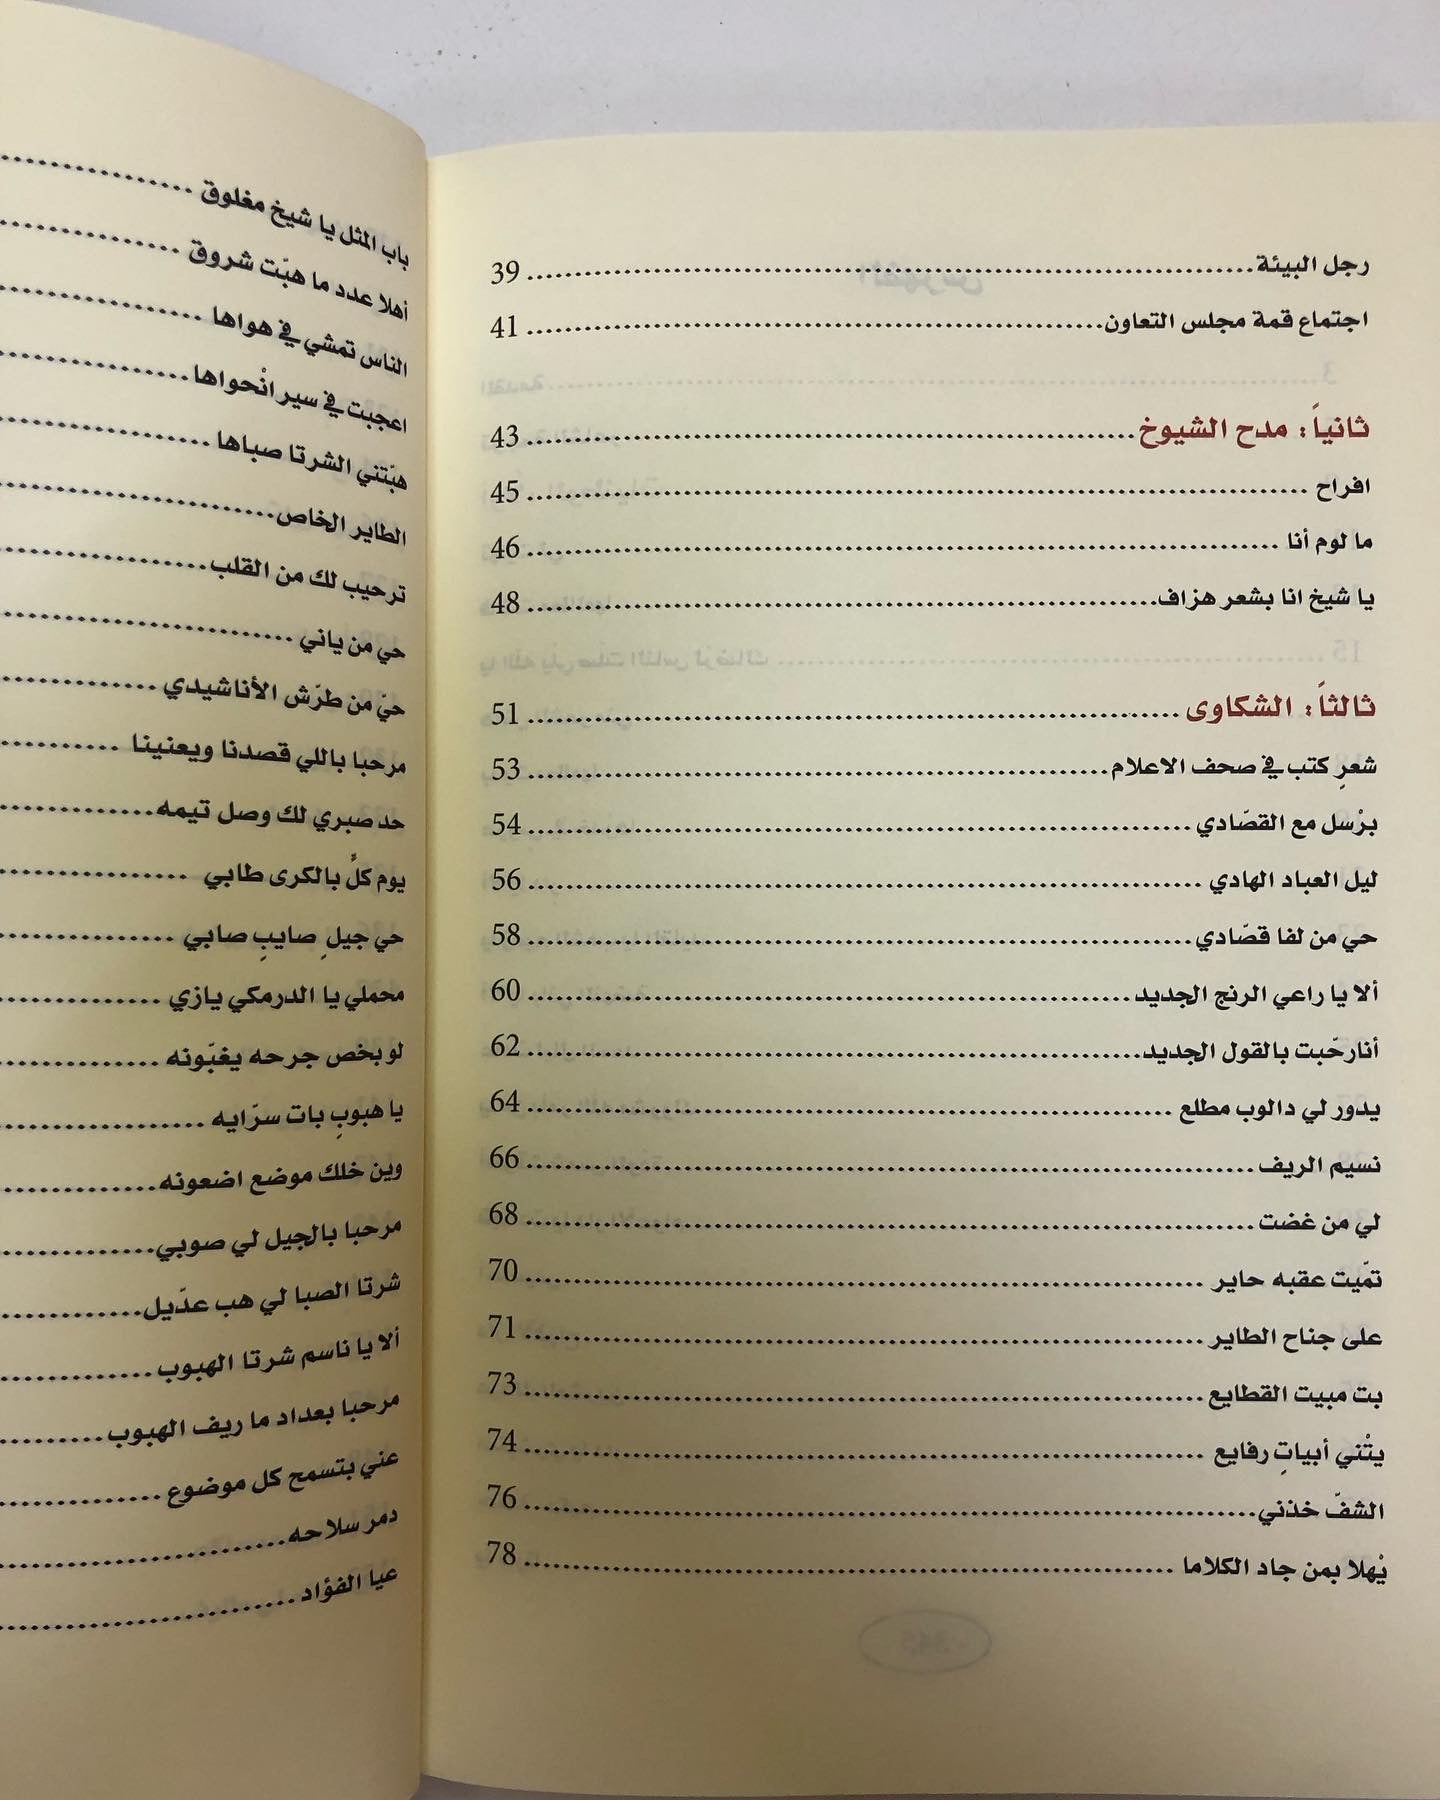 رجل البيئة........................................ 39
اجتماع قمة مجلس التعاون........................................ 41
ثانياً: مدح الشيوخ........................................ 43
افراح ........................................ 45
ما لوم أنا ........................................ 46
يا شيخ انا بشعر هزاف........................................ 48
ثالثاً: الشكاوى ........................................ 51
شعرِ كتب في صحف الاعلام........................................ 53
برْسل مع القصّادي ........................................ 54
ليل العباد الهادي ........................................ 56
حي من لفا قصّادي........................................ 58
ألا يا راعي الرنج الجديد ........................................ 60
أنا رحّبت بالقول الجديد........................................ 62
يدور لي دالوب مطلع ........................................ 64
نسيم الريف........................................ 66
لي من غضت ........................................ 68
تمّيت عقبه حاير ........................................ 70
على جناح الطاير ........................................ 71
بت مبيت القطايع ........................................ 73
يتْني أبياتِ رفايع ........................................ 74
الشفّ خذني........................................ 76
يْهلا بمن جاد الكلاما ........................................ 78
باب المثل يا شيخ مغلوق ....................
أهلا عدد ما هبّت شروق ....................
الناس تمشي في هواها ....................
اعجبت في سير انْحواها....................
هبّتني الشرتا صباها ....................
الطاير الخاص....................
ترحيب لك من القلب....................
حي من ياني ....................
حيّ من طرّش الأناشيدي ....................
مرحبا باللي قصدنا ويعنينا ....................
حد صبري لك وصل تيمه....................
يوم كلٍّ بالكرى طابي ....................
حي جيلِ صايبِ صابي ....................
محملي يا الدرمكي يازي ....................
لو بخص جرحه يغبّونه ....................
يا هبوبِ بات سرّايه ....................
وين خلك موضع اضعونه....................
مرحبا بالجيل لي صوبي....................
شرتا الصبا لي هب عدّيل....................
ألا يا ناسم شرتا الهبوب ....................
مرحبا بعداد ما ريف الهبوب....................
عني بتسمح كل موضوع ....................
دمر سلاحه....................
عيا الفؤاد ....................